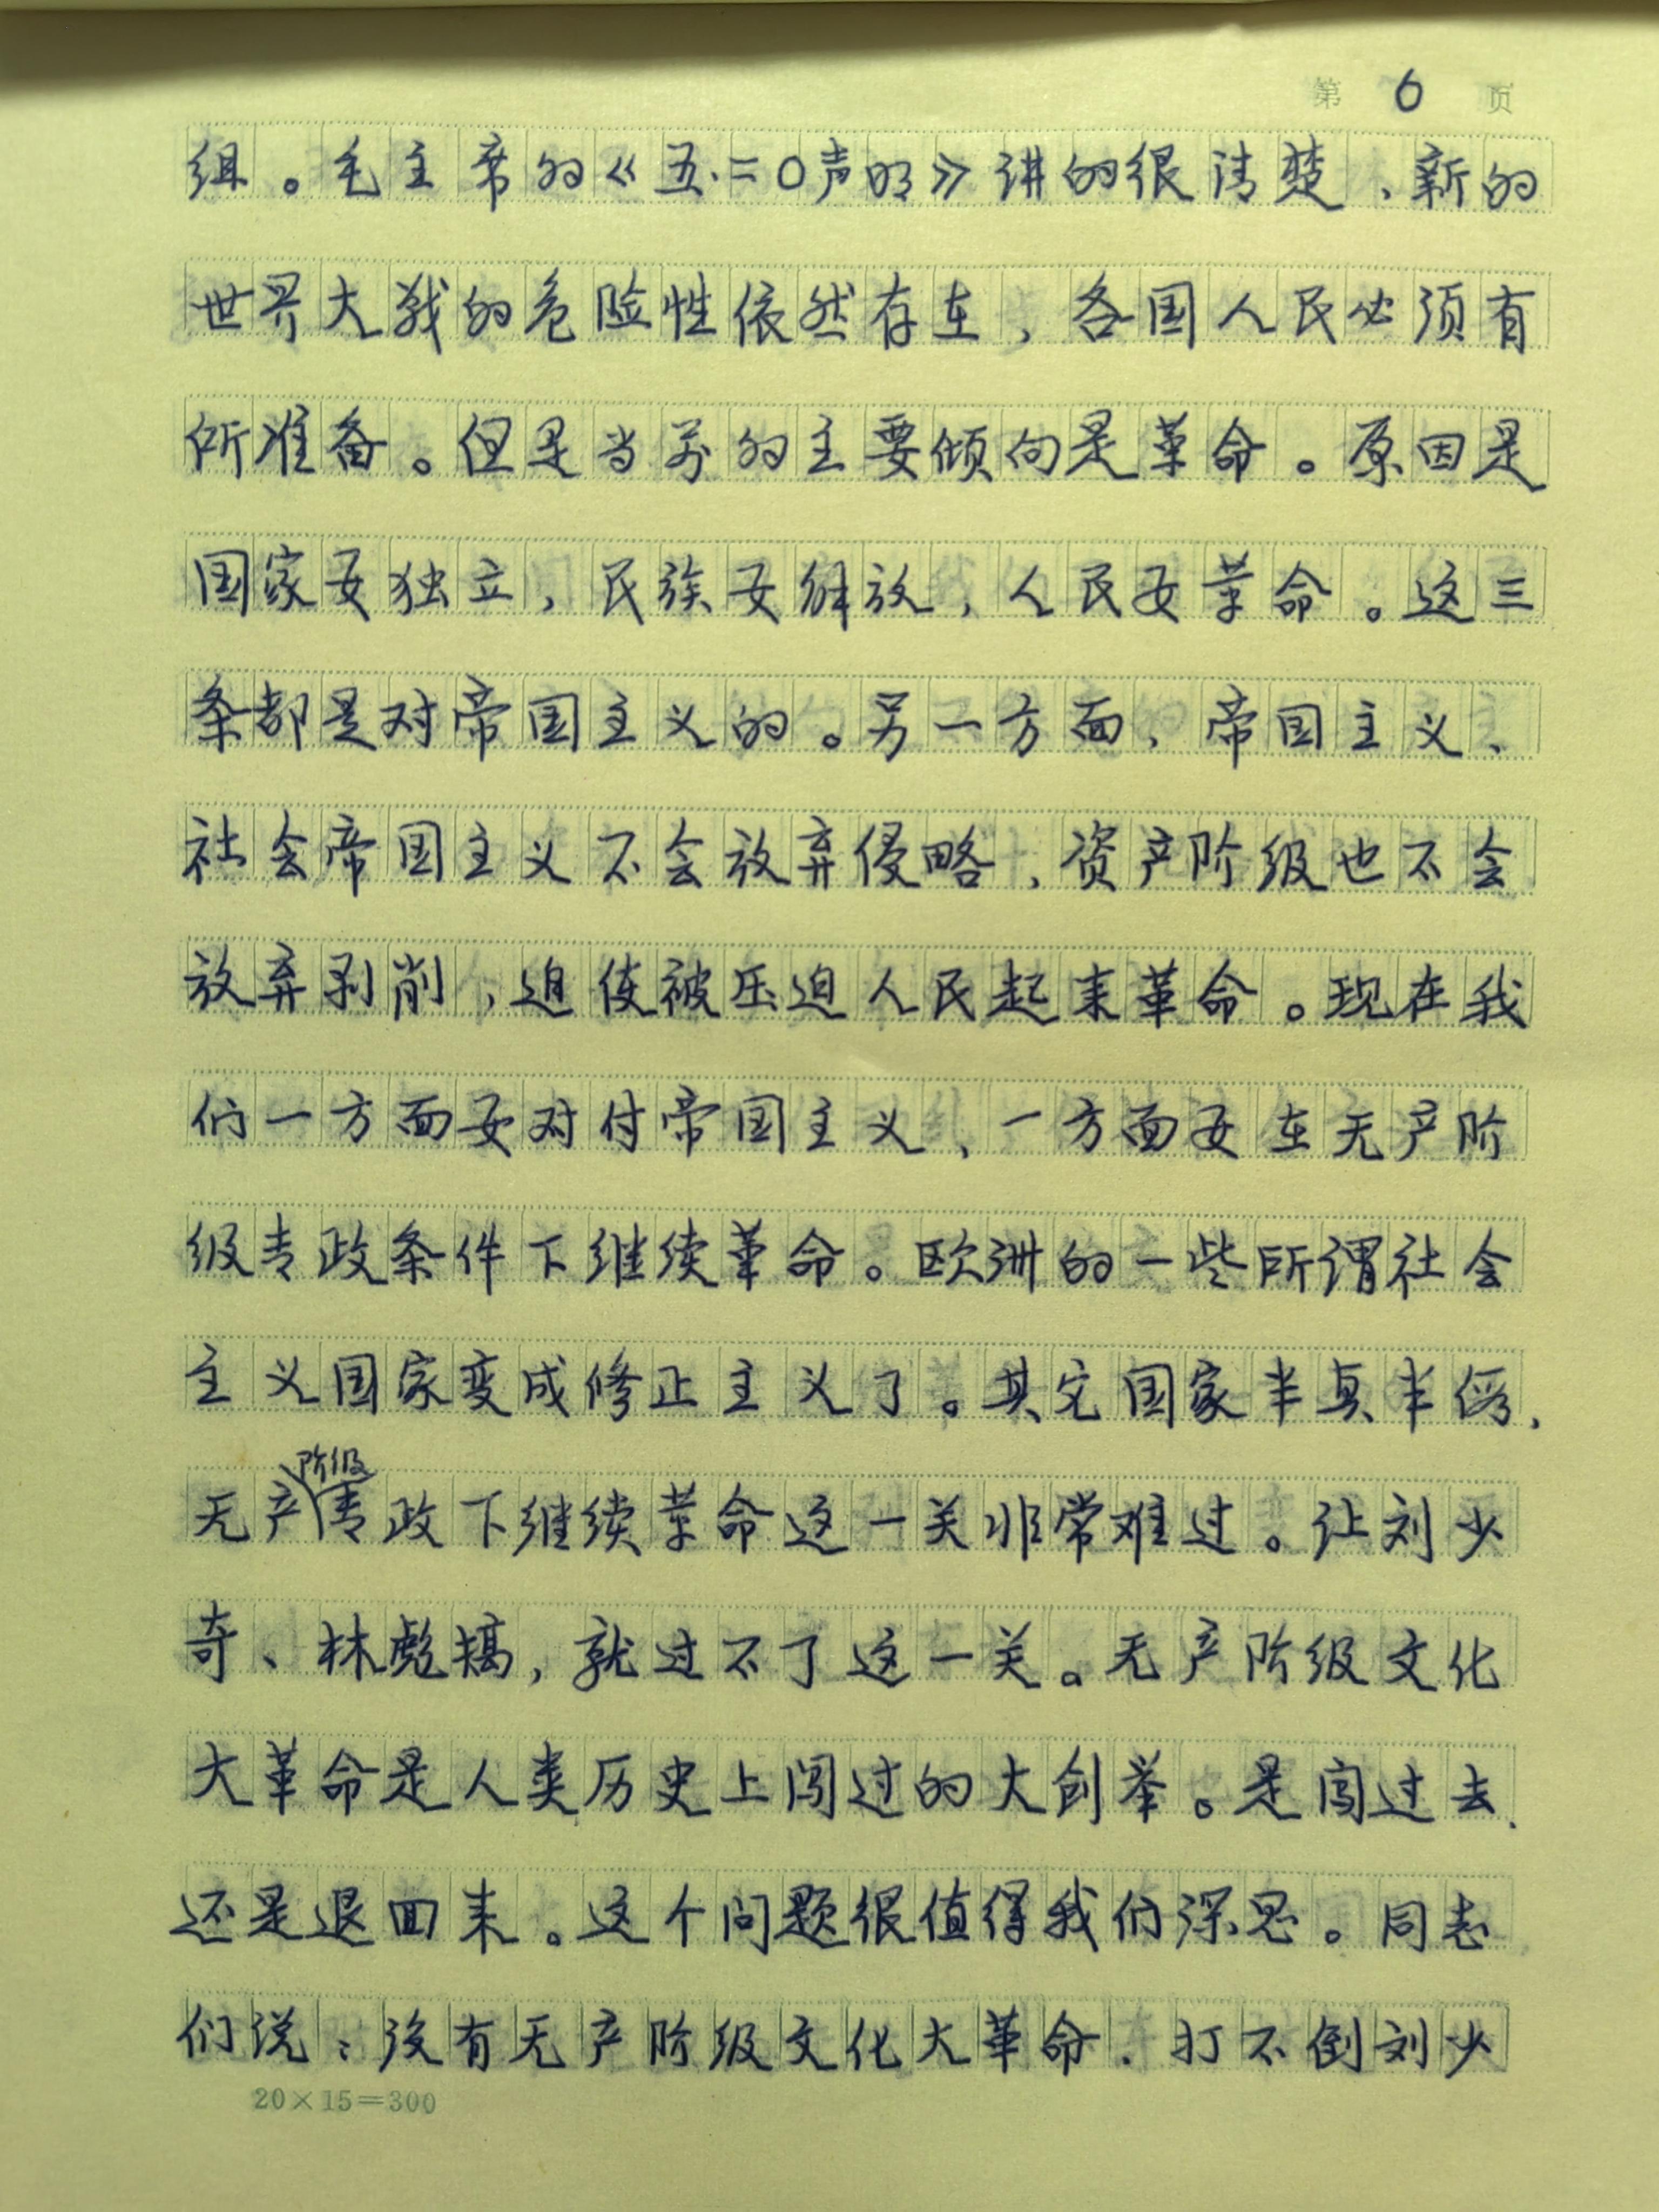 第 6 页
组。毛主席的《五·二〇声明》讲的很清楚，新的
世界大战的危险性依然存在，各国人民必须有
所准备。但是当前的主要倾向是革命。原因是
国家要独立，民族要解放，人民要革命。这三
条都是对帝国主义的。另一方面，帝国主义、
社会帝国主义不会放弃侵略，资产阶级也不会
放弃剥削，迫使被压迫人民起来革命。现在我
们一方面要对付帝国主义，一方面要在无产阶
级专政条件下继续革命。欧洲的一些所谓社会
主义国家变成修正主义了。其它国家半真半假，
无产阶级专政下继续革命这一关非常难过。让刘少
奇、林彪搞，就过不了这一关。无产阶级文化
大革命是人类历史上闯过的大创举。是闯过去，
还是退回来。这个问题很值得我们深思。同志
们说：没有无产阶级文化大革命，打不倒刘少
20×15＝300